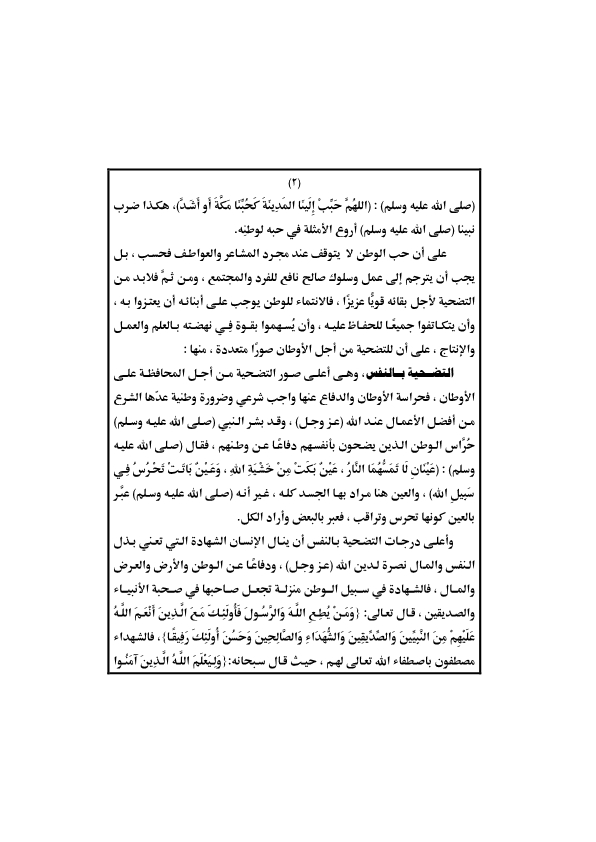 (٢)
(صلى الله عليه وسلم) : (اللهُمَّ حَبِّبْ إِلَينَا المَدِينَةَ كَحُبِّنَا مَكَّةَ أو أَشَدَّ)، هكذا ضرب
نبينا (صلى الله عليه وسلم) أروع الأمثلة في حبه لوطنِه.
على أن حب الوطن لا يتوقف عند مجرد المشاعر والعواطف فحسب ، بل
يجب أن يترجم إلى عمل وسلوك صالح نافع للفرد والمجتمع ، ومن ثمَّ فلابد من
التضحية لأجل بقائه قويًّا عزيزًا ، فالانتماء للوطن يوجب على أبنائه أن يعتزوا به ،
وأن يتكاتفوا جميعًا للحفاظ عليه ، وأن يُسهموا بقوة في نهضته بالعلم والعمل
والإنتاج ، على أن للتضحية من أجل الأوطان صورًا متعددة ، منها :
التضحية بالنفس، وهى أعلى صور التضحية من أجل المحافظة على
الأوطان ، فحراسة الأوطان والدفاع عنها واجب شرعي وضرورة وطنية عدّها الشرع
من أفضل الأعمال عند الله (عز وجل) ، وقد بشر النبي (صلى الله عليه وسلم)
حُرَّاس الوطن الذين يضحون بأنفسهم دفاعًا عن وطنهم ، فقال (صلى الله عليه
وسلم) : (عَيْنَانِ لَا تَمَسُّهُمَا النَّارُ ، عَيْنٌ بَكَتْ مِنْ خَشْيَةِ اللهِ ، وَعَيْنٌ بَاتَتْ تَحْرُسُ فِي
سَبِيلِ الله) ، والعين هنا مراد بها الجسد كله ، غير أنه (صلى الله عليه وسلم) عبَّر
بالعين كونها تحرس وتراقب ، فعبر بالبعض وأراد الكل.
وأعلى درجات التضحية بالنفس أن ينال الإنسان الشهادة التي تعني بذل
النفس والمال نصرة لدين الله (عز وجل) ، ودفاعًا عن الوطن والأرض والعرض
والمال ، فالشهادة في سبيل الوطن منزلة تجعل صاحبها في صحبة الأنبياء
والصديقين ، قال تعالى: {وَمَنْ يُطِعِ اللَّهَ وَالرَّسُولَ فَأُولَئِكَ مَعَ الَّذِينَ أَنْعَمَ اللَّهُ
عَلَيْهِمْ مِنَ النَّبِيِّينَ وَالصِّدِّيقِينَ وَالشُّهَدَاءِ وَالصَّالِحِينَ وَحَسُنَ أُولَئِكَ رَفِيقًا} ، فالشهداء
مصطفون باصطفاء الله تعالى لهم ، حيث قال سبحانه: {وَلِيَعْلَمَ اللَّهُ الَّذِينَ آمَنُوا